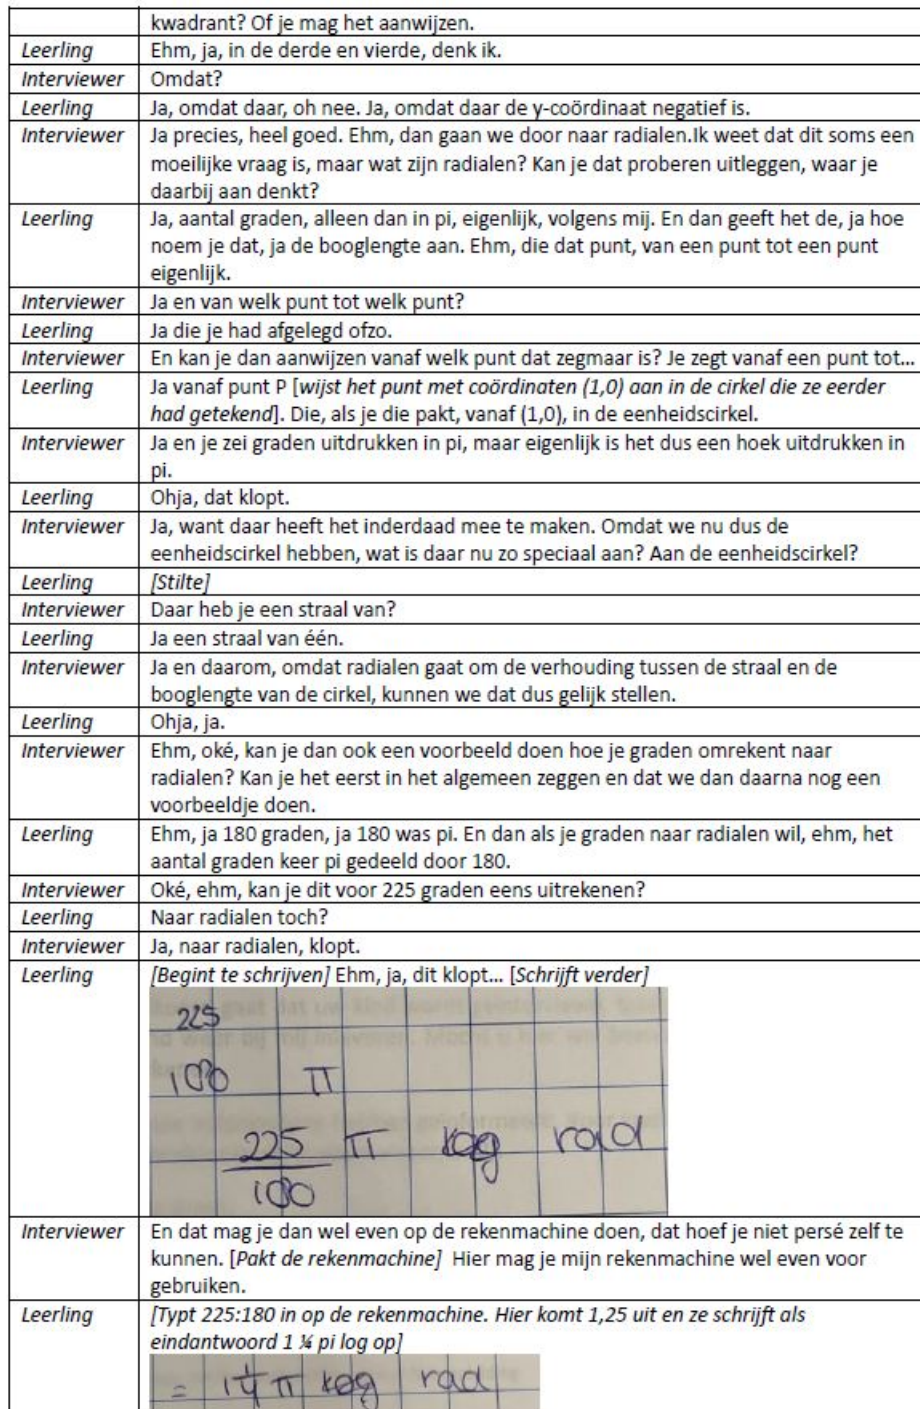 kwadrant? Of je mag het aanwijzen.
Leerling Ehm, ja, in de derde en vierde, denk ik.
Interviewer Omdat?
Leerling Ja, omdat daar, oh nee. Ja, omdat daar de y-coördinaat negatief is.
Interviewer Ja precies, heel goed. Ehm, dan gaan we door naar radialen.Ik weet dat dit soms een
moeilijke vraag is, maar wat zijn radialen? Kan je dat proberen uitleggen, waar je
daarbij aan denkt?
Leerling Ja, aantal graden, alleen dan in pi, eigenlijk, volgens mij. En dan geeft het de, ja hoe
noem je dat, ja de booglengte aan. Ehm, die dat punt, van een punt tot een punt
eigenlijk.
Interviewer Ja en van welk punt tot welk punt?
Leerling Ja die je had afgelegd ofzo.
Interviewer En kan je dan aanwijzen vanaf welk punt dat zegmaar is? Je zegt vanaf een punt tot...
Leerling Ja vanaf punt P [wijst het punt met coördinaten (1,0) aan in de cirkel die ze eerder
had getekend]. Die, als je die pakt, vanaf (1,0), in de eenheidscirkel.
Interviewer Ja en je zei graden uitdrukken in pi, maar eigenlijk is het dus een hoek uitdrukken in
pi.
Leerling Ohja, dat klopt.
Interviewer Ja, want daar heeft het inderdaad mee te maken. Omdat we nu dus de
eenheidscirkel hebben, wat is daar nu zo speciaal aan? Aan de eenheidscirkel?
Leerling [Stilte]
Interviewer Daar heb je een straal van?
Leerling Ja een straal van één.
Interviewer Ja en daarom, omdat radialen gaat om de verhouding tussen de straal en de
booglengte van de cirkel, kunnen we dat dus gelijk stellen.
Leerling Ohja, ja.
Interviewer Ehm, oké, kan je dan ook een voorbeeld doen hoe je graden omrekent naar
radialen? Kan je het eerst in het algemeen zeggen en dat we dan daarna nog een
voorbeeldje doen.
Leerling Ehm, ja 180 graden, ja 180 was pi. En dan als je graden naar radialen wil, ehm, het
aantal graden keer pi gedeeld door 180.
Interviewer Oké, ehm, kan je dit voor 225 graden eens uitrekenen?
Leerling Naar radialen toch?
Interviewer Ja, naar radialen, klopt.
Leerling [Begint te schrijven] Ehm, ja, dit klopt... [Schrijft verder]
225
180 π
225 π rad
180
Interviewer En dat mag je dan wel even op de rekenmachine doen, dat hoef je niet persé zelf te
kunnen. [Pakt de rekenmachine] Hier mag je mijn rekenmachine wel even voor
gebruiken.
Leerling [Typt 225:180 in op de rekenmachine. Hier komt 1,25 uit en ze schrijft als
eindantwoord 1 ¼ pi log op]
= 1¼ π rad